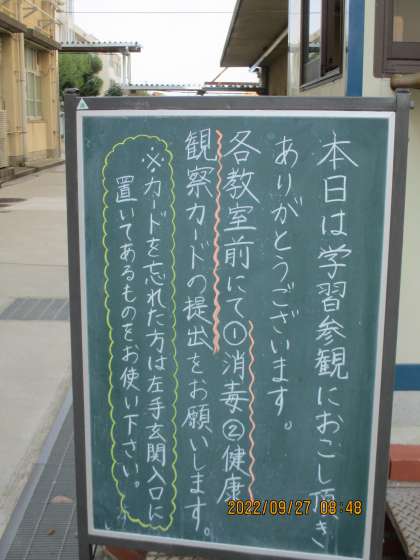 本日は学習参観におこし頂き
ありがとうございます。
各教室前にて①消毒②健康
観察カードの提出をお願いします。
※カードを忘れた方は左手玄関入口に
置いてあるものをお使い下さい。
2022/09/27 08:48